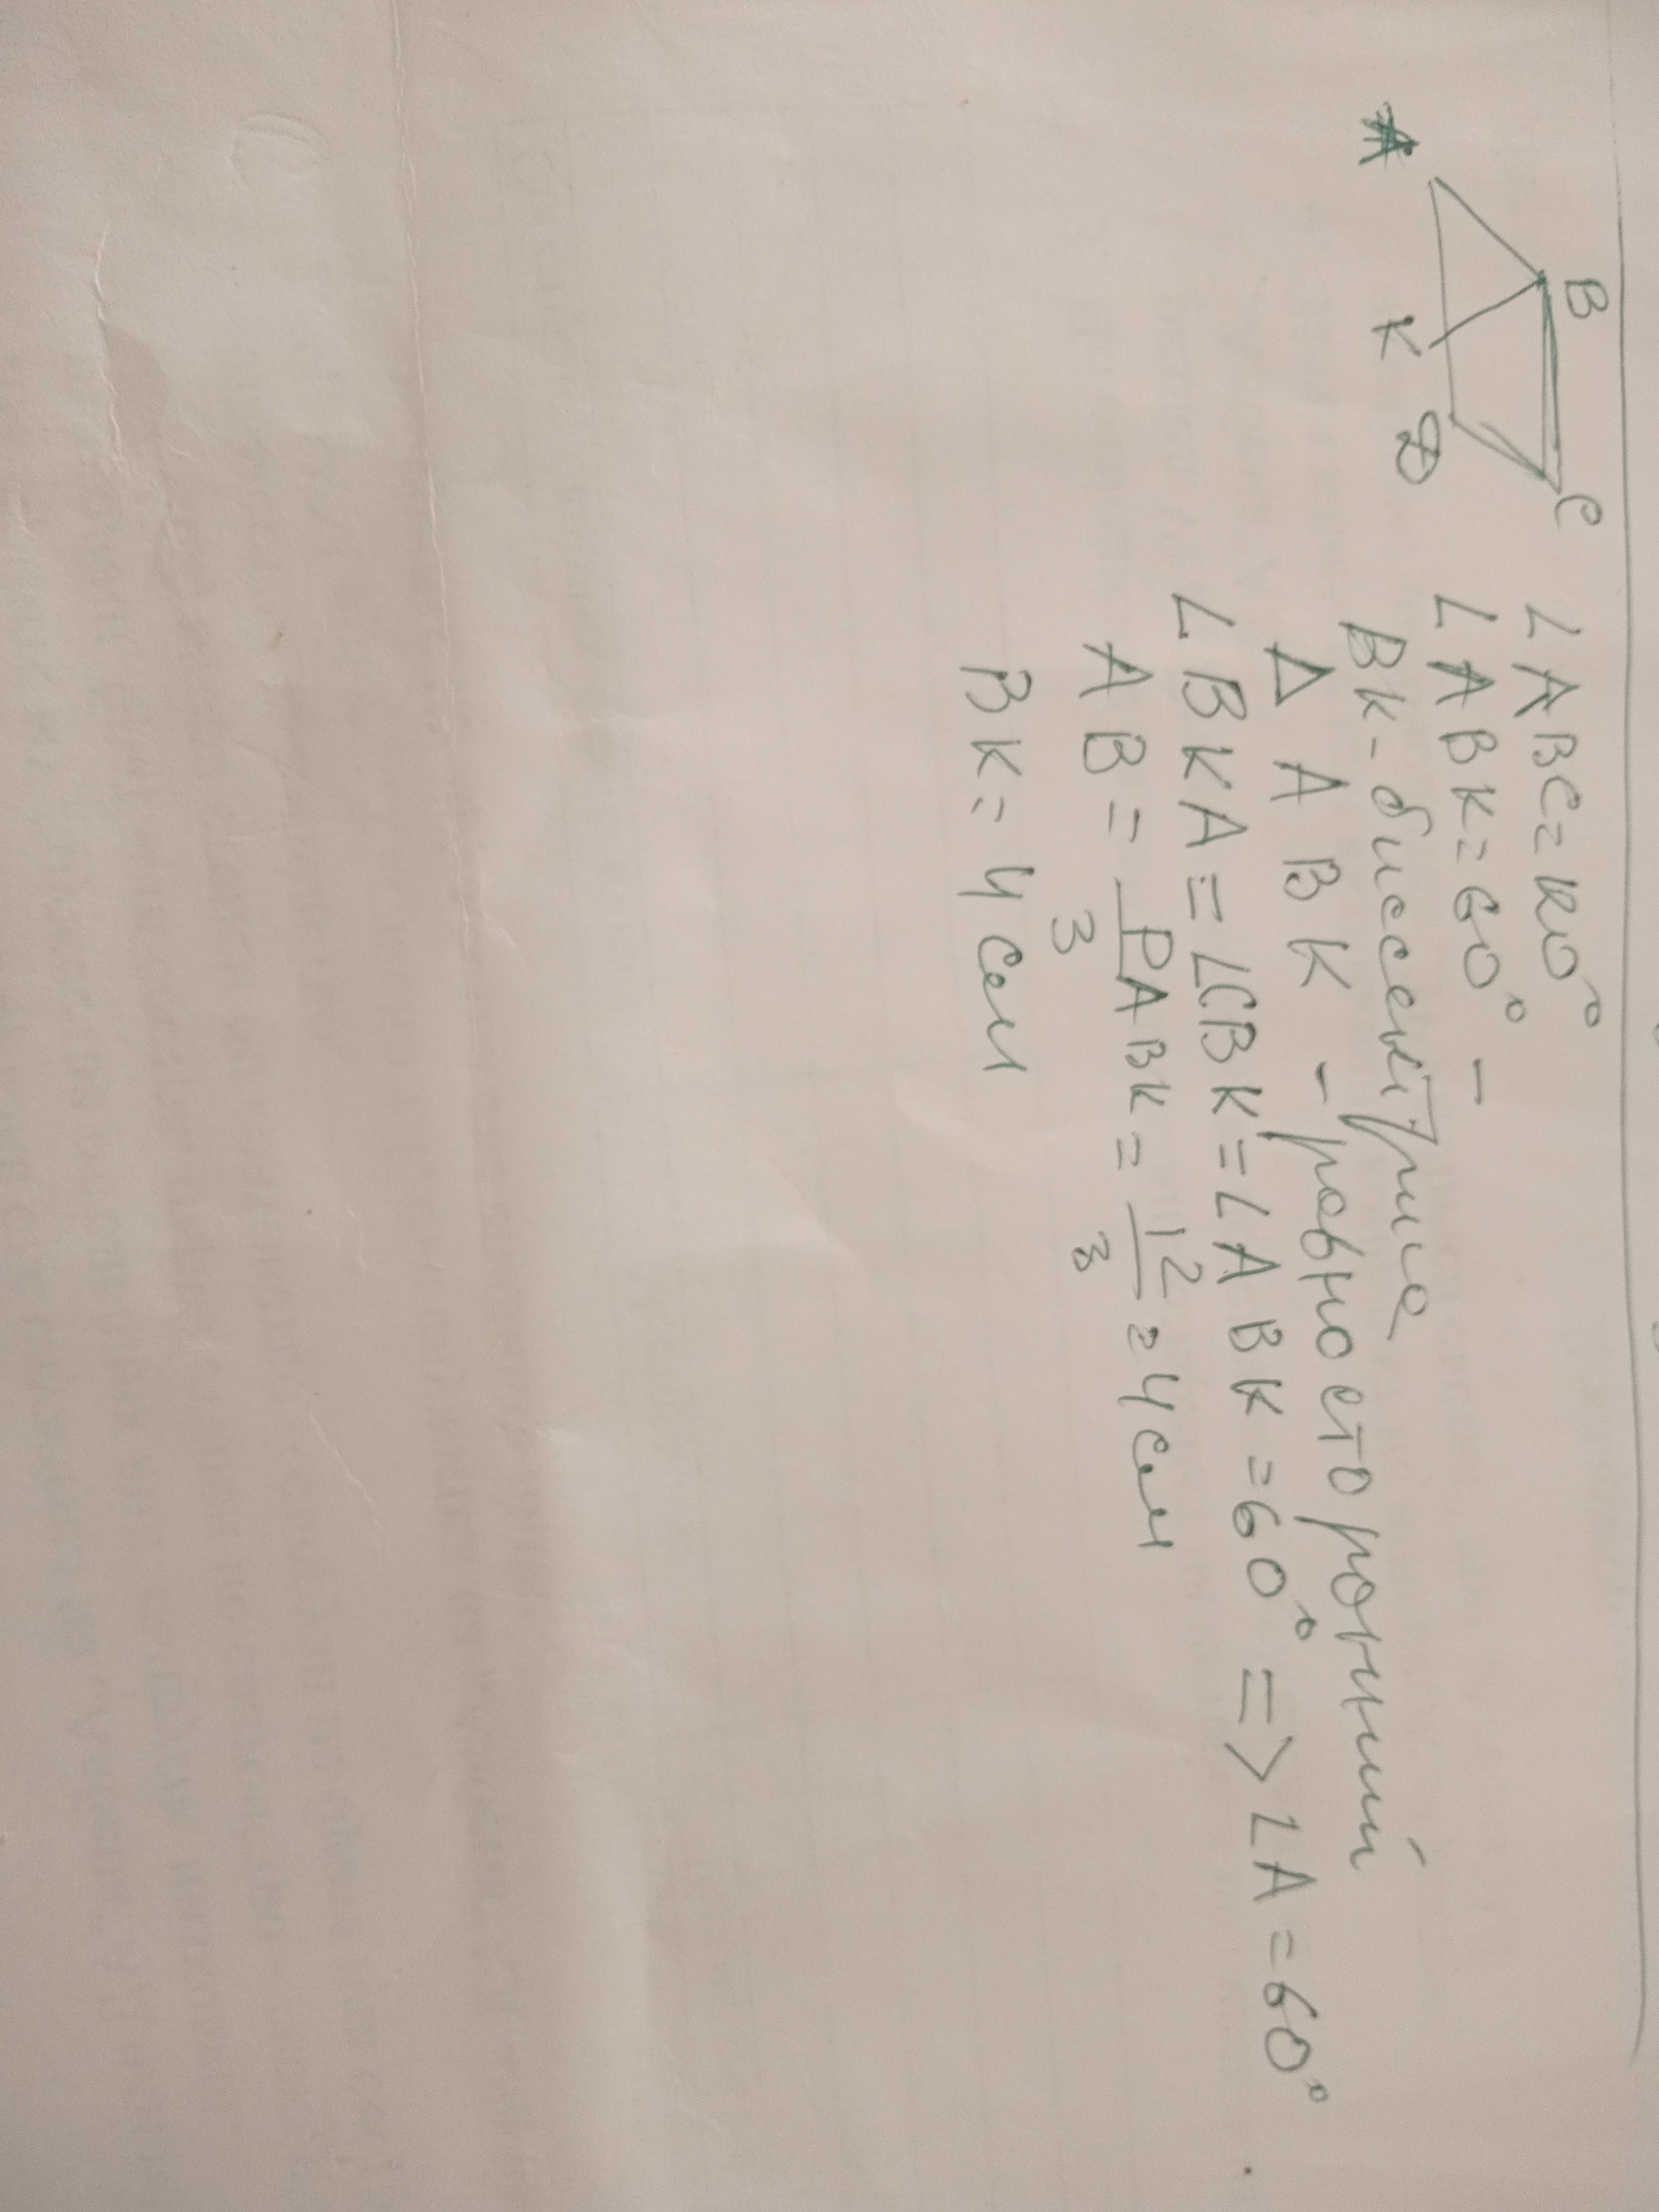 B
C
A
K
D
∠ABC=120°
∠ABK=60° –
BK-биссектриса
△ ABK – равносторонний
∠BKA=∠CBK=∠ABK=60° => ∠A=60°
AB = PABK/3 = 12/3 = 4 см
BK = 4 см